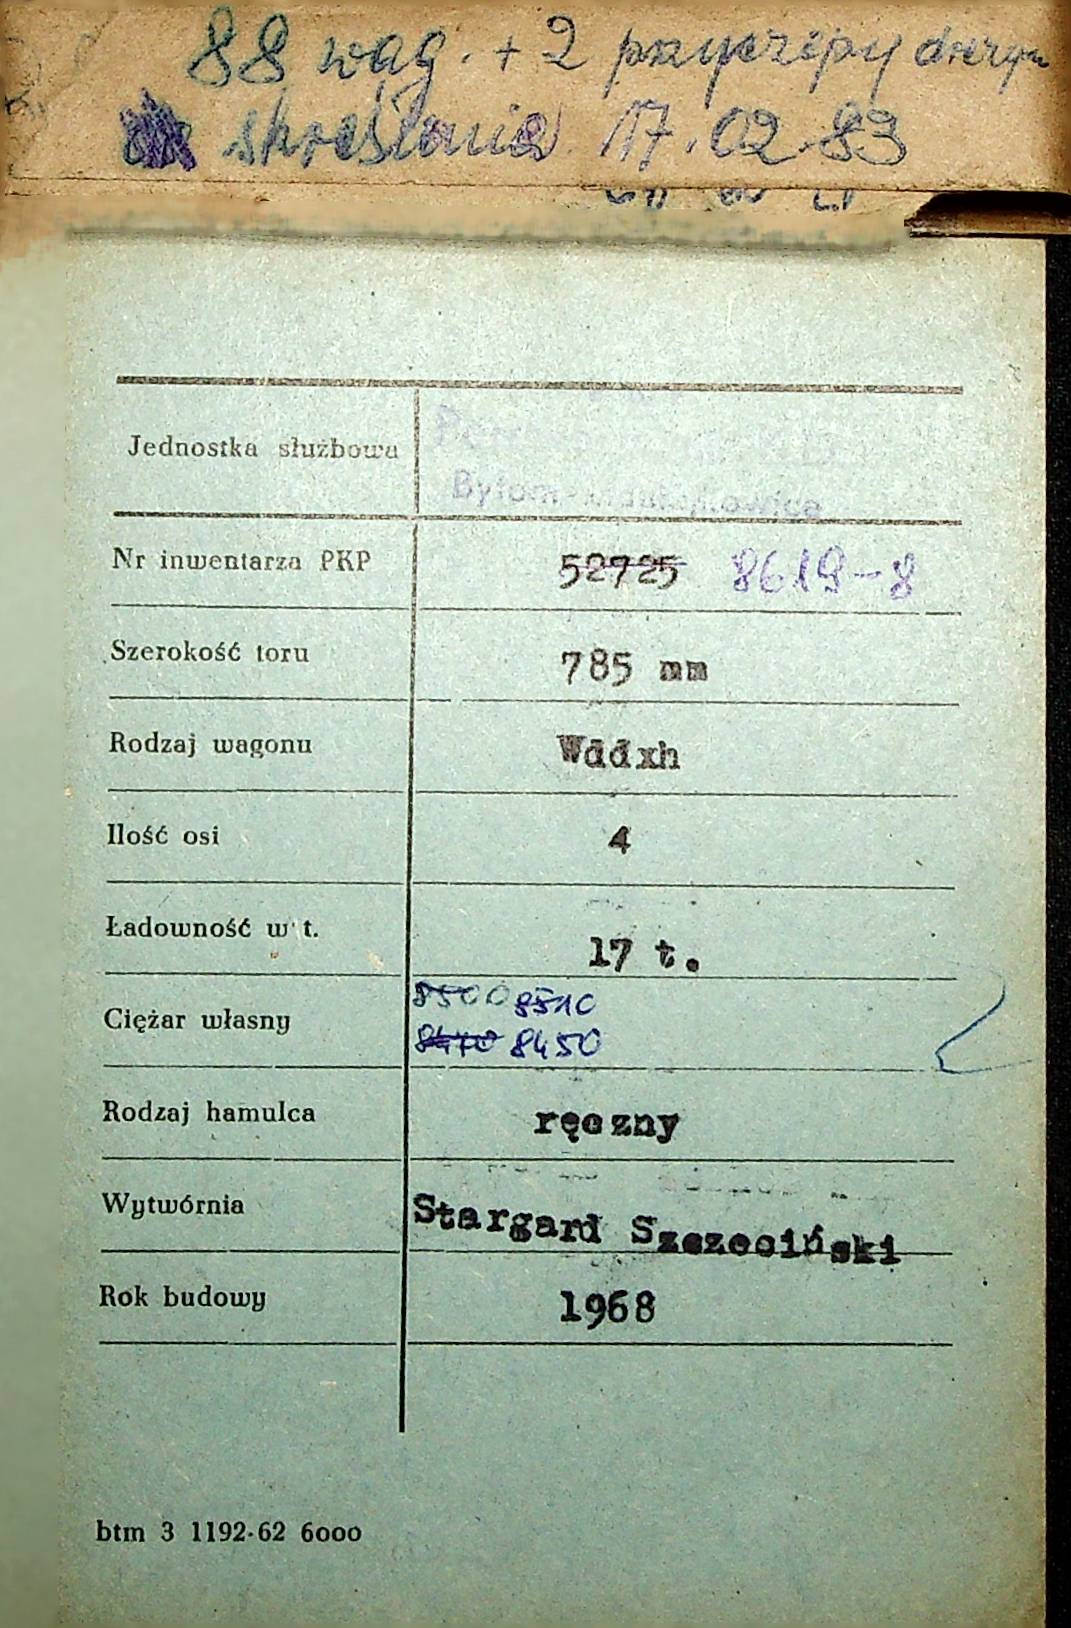 88 wag. + 2 przyczepy drezyn
skreślenie 17.02.83
Jednostka służbowa
Bytom-
Nr inwentarza PKP 52725 8619-8
Szerokość toru 785 mm
Rodzaj wagonu Wddxh
Ilość osi 4
Ładowność w t. 17 t.
8500 8510
Ciężar własny
8470 8450
Rodzaj hamulca ręczny
Wytwórnia Stargard Szczeciński
Rok budowy 1968
btm 3 1192-62 6000